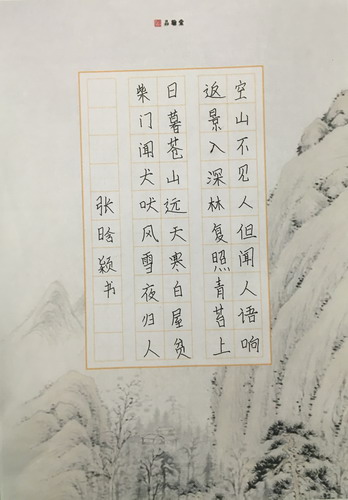 品翰堂
空山不见人但闻人语响
返景入深林复照青苔上
日暮苍山远天寒白屋贫
柴门闻犬吠风雪夜归人
张晗颖书